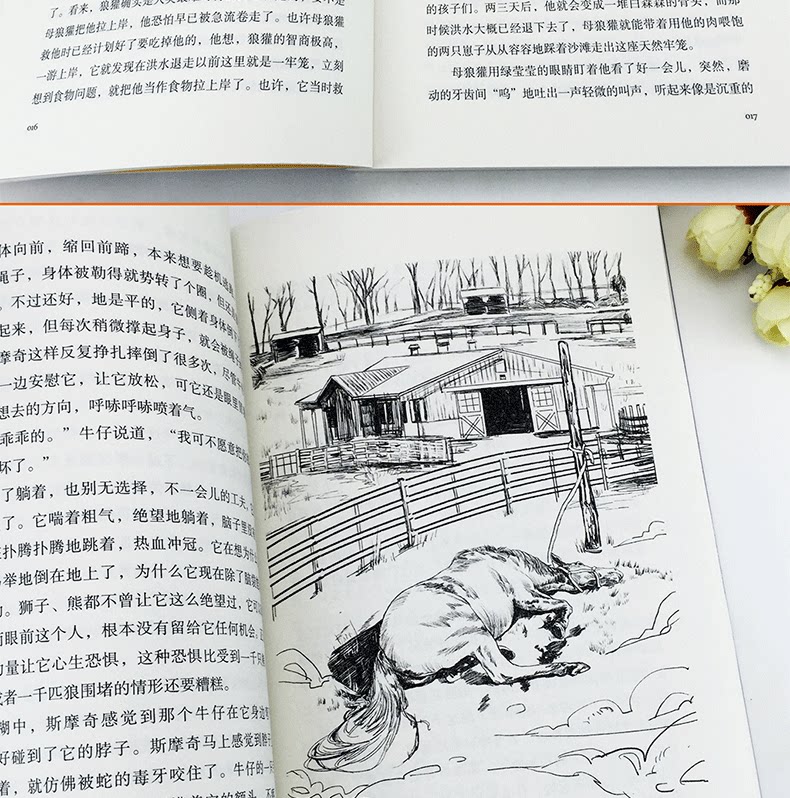 了。看来，狼獾确实是
母狼獾把他拉上岸，他恐怕早已被急流卷走了。也许母狼獾
救他时已经计划好了要吃掉他的，他想，狼獾的智商极高，
一游上岸，它就发现在洪水退走以前这里就是一牢笼，立刻
想到食物问题，就把他当作食物拉上岸了。也许，它当时救
016
的孩子们。两三天后，他就会变成一堆白森森的骨头，而那
时候洪水大概已经退下去了，母狼獾就能带着用他的肉喂饱
的两只崽子从从容容地踩着沙滩走出这座天然牢笼。
母狼獾用绿莹莹的眼睛盯着他看了好一会儿，突然，磨
动的牙齿间“呜”地吐出一声轻微的叫声，听起来像是沉重的
017
体向前，缩回前蹄，本来想要趁机逃
绳子，身体被勒得就势转了个圈，但还
。不过还好，地是平的，它侧着身体倒
起来，但每次稍微撑起身子，就会被绳
摩奇这样反复挣扎摔倒了很多次，尽管
一边安慰它，让它放松，可它还是眼里
想去的方向，呼哧呼哧喷着气。
乖乖的。”牛仔说道，“我可不愿意把
坏了。”
了躺着，也别无选择，不一会儿的工夫，
了。它喘着粗气，绝望地躺着，脑子里
扑腾扑腾地跳着，热血冲冠。它在想为什
举地倒在地上了，为什么它现在除了脑
。狮子、熊都不曾让它这么绝望过，它可
而眼前这个人，根本没有留给它任何机会，
力量让它心生恐惧，这种恐惧比受到一千只
或者一千匹狼围堵的情形还要糟糕。
糊中，斯摩奇感觉到那个牛仔在它身边
好碰到了它的脖子。斯摩奇马上感觉到脖
着，就仿佛被蛇的毒牙咬住了。牛仔的一
它的额头，